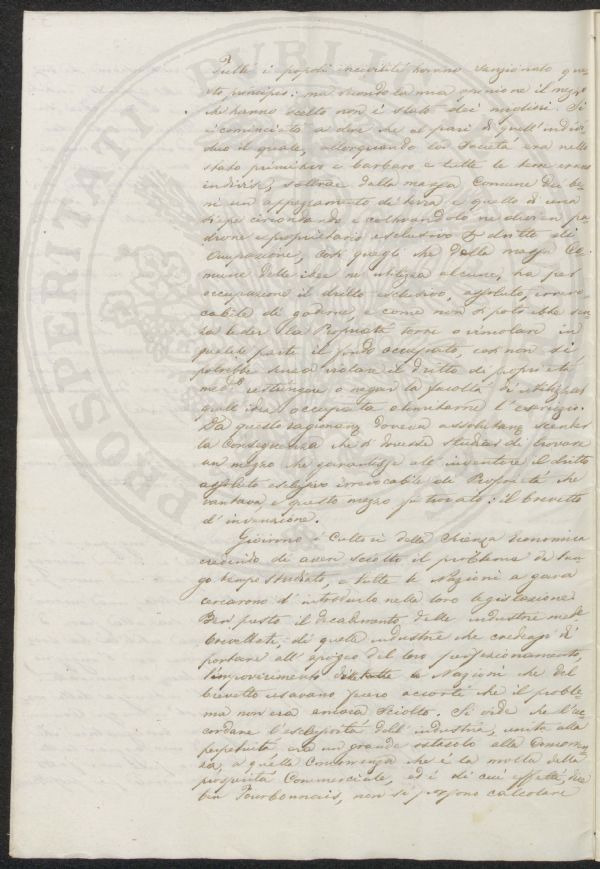 Tutti i popoli inciviliti hanno sanzionato que-
sto principio: ma secondo la mia opinione il mezzo
che hanno scelto non è stato dei migliori. Si
è cominciato a dire che al pari di quell'indivi-
duo il quale, allorquando la Società era nello
stato primitivo e barbaro e tutte le terre erano
indivise, sottrae dalla massa Comune dei be-
ni un appezzamento di terra, e quello di una
siepe circondando e coltivandolo ne divien pa-
drone e proprietario esclusivo di dritto di
Occupazione, così quegli che dalla massa Co-
mune delle idee ne utilizza alcune, ha per
occupazione il dritto esclusivo, assoluto, irrevo-
cabile di goderne, e come non si potrebbe sen-
za leder la Proprietà torre o vincolare in
qualche parte il fondo occupato, così non si
potrebbe senza violare il dritto di proprietà
med.ᵐᵒ restringere o negar la facoltà di utilizzar
quelle idee occupate o limitarne l'esercizio.
Da questo ragionam. doveva assolutam. scender
la Conseguenza che si dovesse studiar di trovare
un mezzo che garantisse allo inventore il dritto
assoluto esclusivo irrevocabile di Proprietà che
vantava, e questo mezzo fu trovato: il brevetto
d'invenzione.
Gioirono i Cultori della Scienza Economica
credendo di avere sciolto il problema da lun-
go tempo studiato, e tutte le Nazioni a gara
cercarono d'introdurlo nella loro legislazione.
Ben presto il decadimento delle industrie med.
brevettate, di quelle industrie che credeasi di
portare all'apogeo del loro perfezionamento,
l'impoverimento di tutte le Nazioni che del
brevetto usavano fecero accorti che il proble-
ma non era ancora Sciolto. Si vide che l'ac-
cordare l'esclusività dell'industria, unita alla
perpetuità, era un grande ostacolo alla Concorren-
za, a quella Concorrenza che è la molla della
prosperità Commerciale, ed i di cui effetti, dice
ben Jourbonnais, non si possono calcolare
PROSPERITATI PUBLICAE